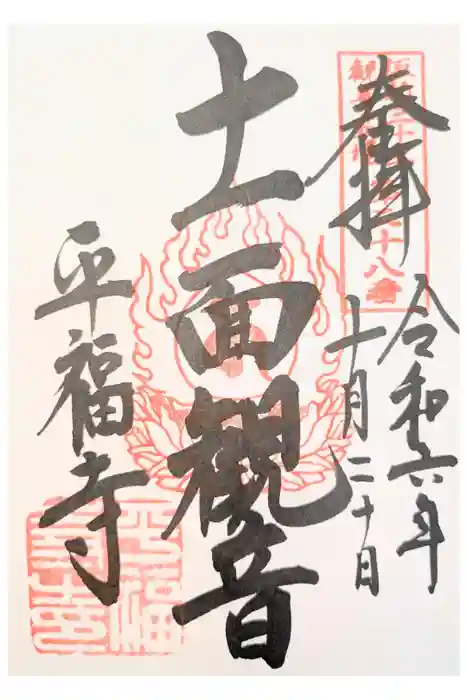 奉拝
令和六年
十月二十日
十一面観音
平福寺